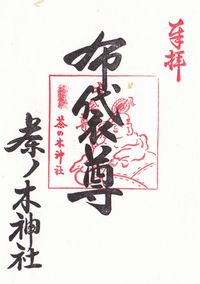 奉拝
布袋尊
茶の木神社
茶ノ木神社